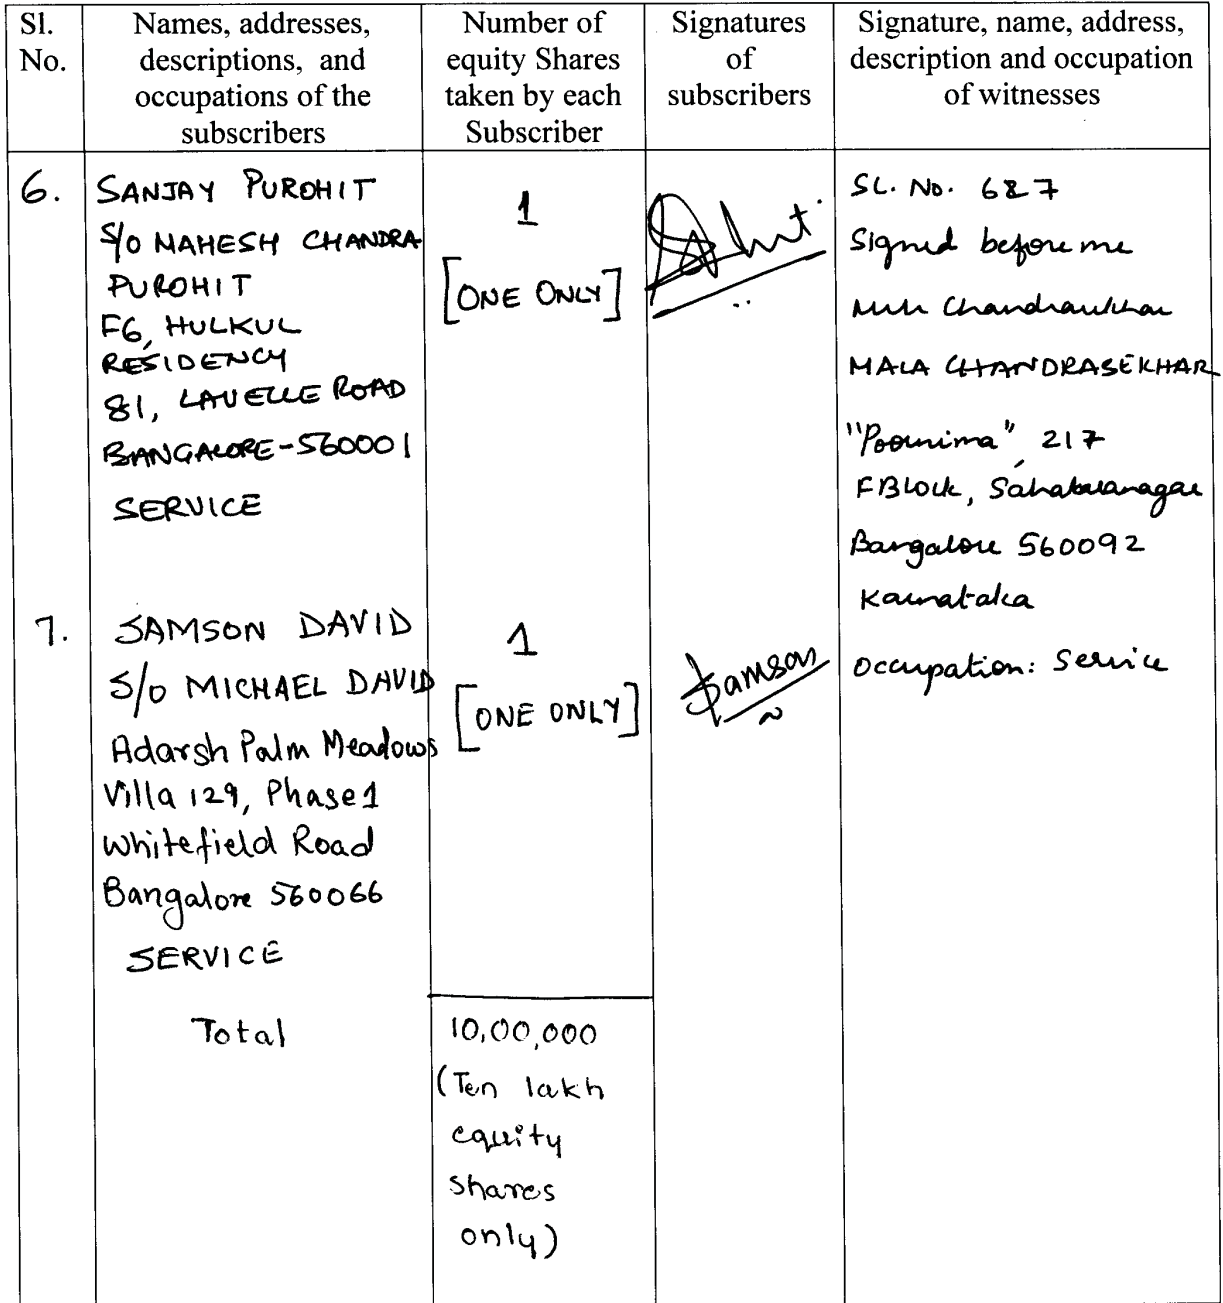 Sl. No.
Names, addresses, descriptions, and occupations of the subscribers
Number of equity Shares taken by each Subscriber
Signatures of subscribers
Signature, name, address, description and occupation of witnesses
6.
SANJAY PUROHIT
S/O MAHESH CHANDRA
PUROHIT
F6, HULKUL
RESIDENCY
81, LAVELLE ROAD
BANGALORE-560001
SERVICE
1
[ONE ONLY]
SL. No. 6 & 7
Signed before me
MALA CHANDRASEKHAR
"Poornima", 217
F Block, Sahakaranagar
Bangalore 560092
Karnataka
Occupation: Service
7.
SAMSON DAVID
S/O MICHAEL DAVID
Adarsh Palm Meadows
Villa 129, Phase 1
Whitefield Road
Bangalore 560066
SERVICE
1
[ONE ONLY]
Samson
Total
10,00,000
(Ten lakh
equity
shares
only)